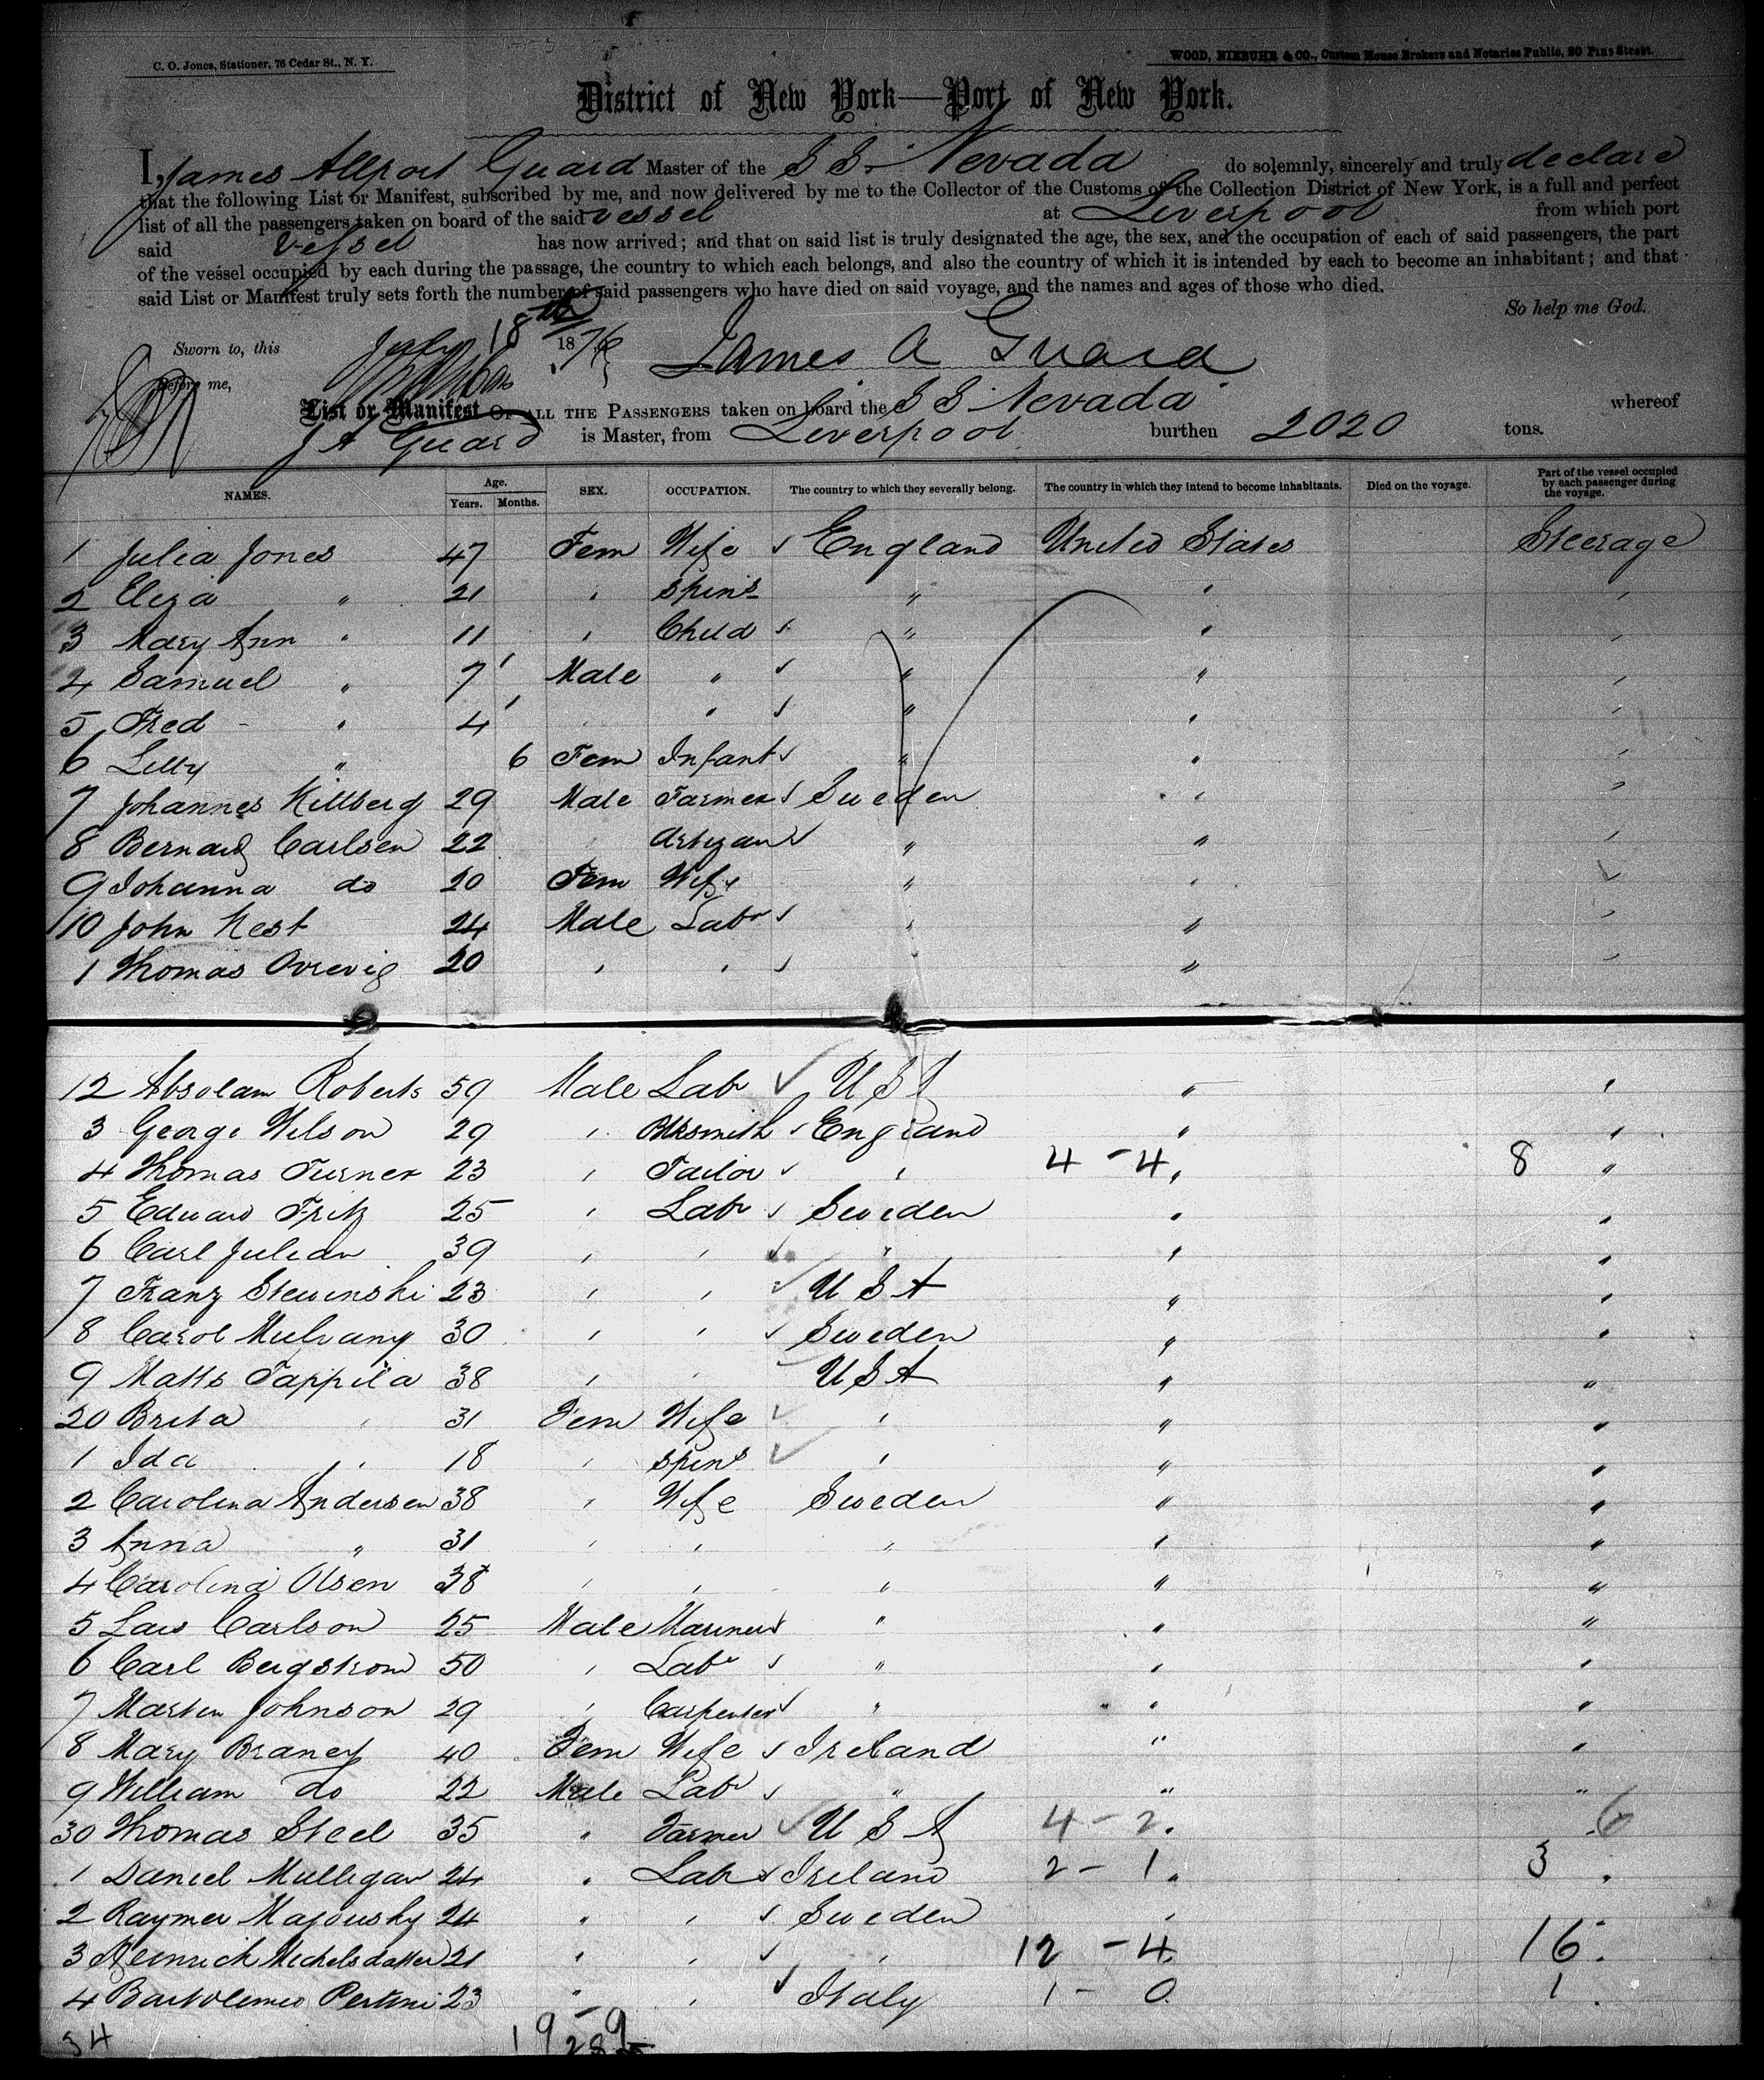 C. O. Jones, Stationer, 76 Cedar St., N. Y.
WOOD, NIEBUHR & CO., Custom House Brokers and Notaries Public, 20 Pine Street.
District of New York—Port of New York.
I, James Allport Guard Master of the SS. Nevada do solemnly, sincerely and truly declare
that the following List or Manifest, subscribed by me, and now delivered by me to the Collector of the Customs of the Collection District of New York, is a full and perfect
list of all the passengers taken on board of the said vessel at Liverpool from which port
said vessel has now arrived; and that on said list is truly designated the age, the sex, and the occupation of each of said passengers, the part
of the vessel occupied by each during the passage, the country to which each belongs, and also the country of which it is intended by each to become an inhabitant; and that
said List or Manifest truly sets forth the number of said passengers who have died on said voyage, and the names and ages of those who died.
So help me God.
Sworn to, this July 18th 1876 James A Guard
Before me,
List or Manifest OF ALL THE PASSENGERS taken on board the SS Nevada whereof
J A Guard is Master, from Liverpool burthen 2020 tons.
NAMES. Age. Years. Months. SEX. OCCUPATION. The country to which they severally belong. The country in which they intend to become inhabitants. Died on the voyage. Part of the vessel occupied by each passenger during the voyage.
1 Julia Jones 47 Fem Wife England United States Steerage
2 Eliza " 21 " Spins " " "
3 Mary Ann " 11 " Child " " "
4 Samuel " 7 Male " " " "
5 Fred " 4 " " " "
6 Lilly " 6 Fem Infant " " "
7 Johannes Killberg 29 Male Farmer Sweden " "
8 Bernard Carlsen 22 Artizan " " "
9 Johanna do 20 Fem Wife " " "
10 John Nest 24 Male Labr " " "
1 Thomas Ovrevig 20 " " " " "
12 Absolam Roberts 59 Male Labr U S A " "
3 George Wilson 29 " Blksmith England " "
4 Thomas Turner 23 " Tailor " 4 - 4 " 8 "
5 Edward Fritz 25 " Labr Sweden " "
6 Carl Julian 39 " " " " "
7 Franz Stewinski 23 " " U S A " "
8 Carol Mulvany 30 " " Sweden " "
9 Matts Tappila 38 " " U S A " "
20 Brita " 31 Fem Wife " " "
1 Ida " 18 " Spins " " "
2 Carolina Andersen 38 " Wife Sweden " "
3 Anna " 31 " " " " "
4 Carolina Olsen 38 " " " " "
5 Lars Carlson 25 Male Mariner " " "
6 Carl Bergstrom 50 " Labr " " "
7 Marten Johnson 29 " Carpenter " " "
8 Mary Braney 40 Fem Wife Ireland " "
9 William do 22 Male Labr " " "
30 Thomas Steel 35 " Farmer U S A 4 - 2 " 6
1 Daniel Mulligan 24 " Labr Ireland 2 - 1 " 3 "
2 Raymer Majowsky 24 " " Sweden "
3 Heinrich Michelsdatter 21 " " " 12 - 4 16
4 Bartolemeo Pertini 23 " " Italy 1 - 0 1
34 19 - 9
28